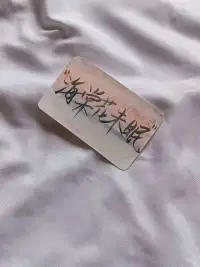 “海棠花未眠”